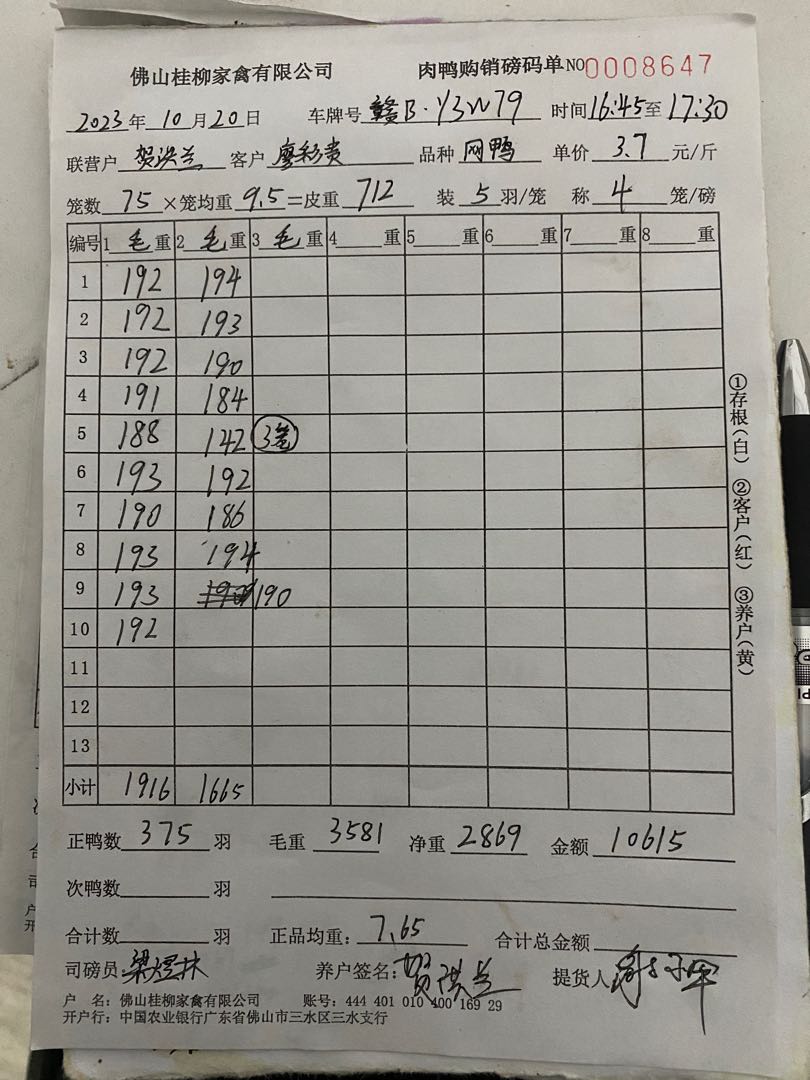 佛山桂柳家禽有限公司 肉鸭购销磅码单 NO0008647
2023年10月20日 车牌号 赣B·Y3W79 时间16:45至17:30
联营户 贺洪兰 客户 廖彩贵 品种 网鸭 单价 3.7 元/斤
笼数 75 ×笼均重 9.5 =皮重 712 装 5 羽/笼 称 4 笼/磅
编号 1 毛 重 2 毛 重 3 毛 重 4 重 5 重 6 重 7 重 8 重
1 192 194
2 192 193
3 192 190
4 191 184
5 188 142 3笼
6 193 192
7 190 186
8 193 194
9 193 190
10 192
11
12
13
小计 1916 1665
正鸭数 375 羽 毛重 3581 净重 2869 金额 10615
次鸭数 羽
合计数 羽 正品均重: 7.65 合计总金额
司磅员: 梁煜林 养户签名: 贺洪兰 提货人
户 名: 佛山桂柳家禽有限公司 账号: 444 401 010 400 169 29
开户行: 中国农业银行广东省佛山市三水区三水支行
①存根(白) ②客户(红) ③养户(黄)